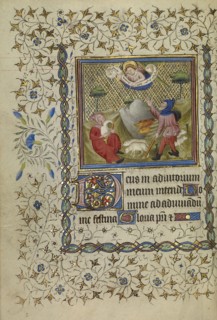 Deus in adiutorium
meum intende Do
mine ad adiuuandū
me festina Gloria pr̄i &